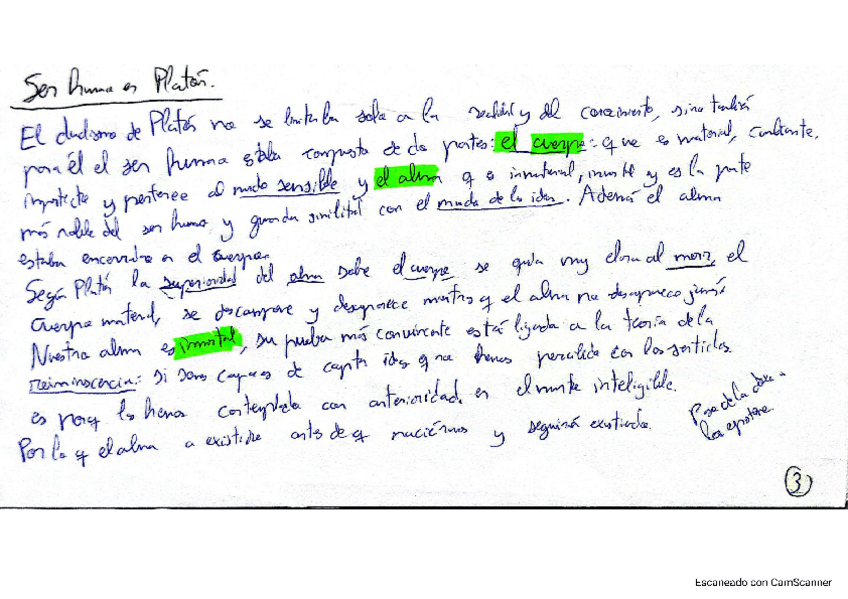 Ser humano Platón.
El dualismo de Platón no se limitaba solo a la realidad y del conocimiento, sino también
para él el ser humano estaba compuesto de dos partes: el cuerpo: que es material, cambiante,
imperfecto y pertenece al mundo sensible y el alma q es inmaterial, inmortal y es la parte
más noble del ser humano y guarda similitud con el mundo de las ideas. Además el alma
estaba encerrada en el cuerpo.
Según Platón la superioridad del alma sobre el cuerpo se muy claro al morir, el
cuerpo material, se descompone y desaparece mientras q el alma no desaparece jamás.
Nuestra alma es inmortal, su prueba más convincente está ligada a la teoría de la
reiminscencia: si somos capaces de captar ideas q no hemos percibido con los sentidos.
es porq las hemos contemplado con anterioridad en el mundo inteligible.
Por lo q el alma a existido antes de q naciéramos y seguirá existiendo.
Pasa de la doxa a
la episteme
3
Escaneado con CamScanner